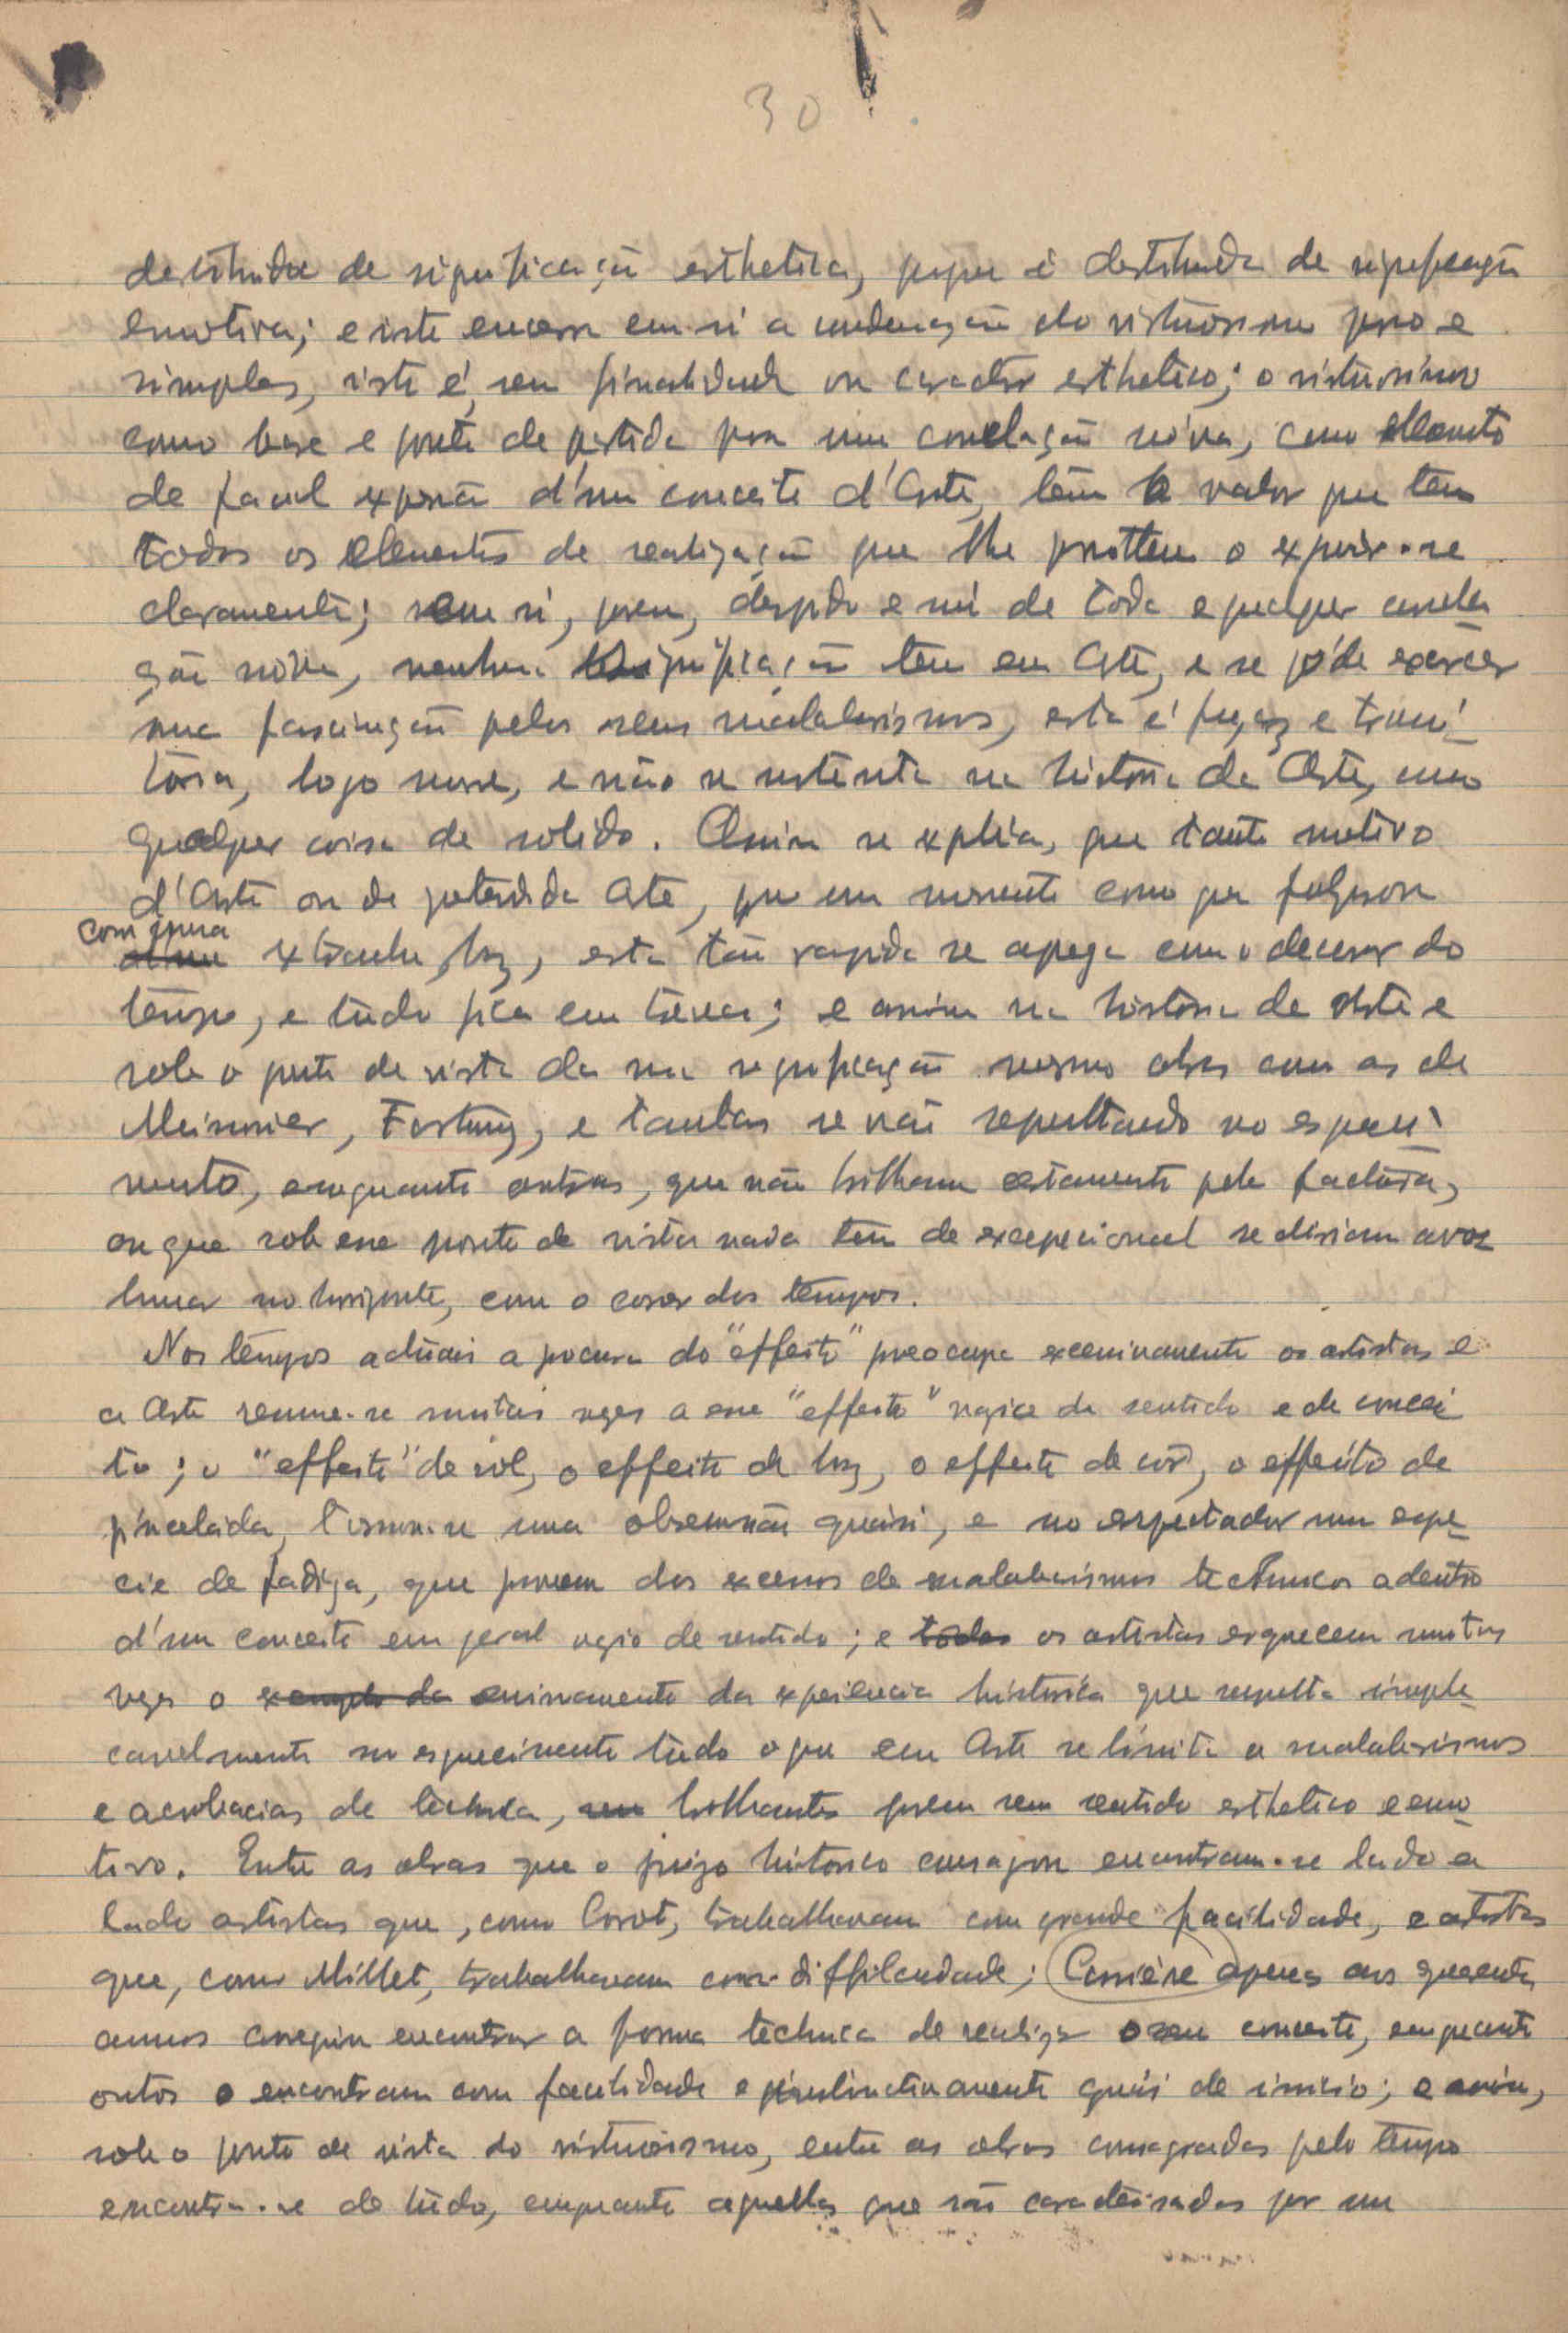 30
destituida de significação esthetica, porque é destituida de significação
emotiva; e isto encerra em si a condenação do virtuosismo puro e
simples, isto é, sem finalidade ou caracter esthetico; o virtuosismo
como base e ponto de partida para uma novas, como elemento
de facil exposição d'um conceito d'Arte, têm o valor que têm
todos os elementos de realização que lhe permittem o expôr-se
claramente; em si, porem, despido e nú de toda e qualquer
nova, nenhuma significação tem em Arte, e se póde exercer
uma fascinação pelos seus malabarismos, esta é fugaz e transi-
tória, logo morre, e não se sustenta na história da Arte, como
qualquer coisa de solido. Assim se explica, que tanto motivo
d'Arte ou de pretendida Arte, que um momento como que fulgurou
com uma extranha luz, esta tão rapida se apaga com o decorrer do
tempo, e tudo fica em trevas; e assim na história da Arte e
sob o ponto de vista da sua significação mesmo obras como as de
Meissonier, Fortuny, e tantas se vão sepultando no esqueci-
mento, emquanto outras, que não brilham certamente pela factura,
ou que sob esse ponto de vista nada têm de excepcional se diriam avo-
lumar no horizonte, com o correr dos tempos.
Nos tempos actuais a procura do "effeito" preocupa excessivamente os artistas e
a Arte resume-se muitas vezes a esse "effeito" vazio de sentido e de concei
to; o "effeito" de sol, o effeito de luz, o effeito de côr, o effeito de
pincelada, torna-se uma obsessão quasi, e no espectador uma espe-
cie de fadiga, que provem dos excessos de malabarismos technicos adentro
d'um conceito em geral vazio de sentido; e todos os artistas esquecem muitas
vezes o exemplo da ensinamento da experiencia histórica que sepulta impla-
cavelmente no esquecimento tudo o que em Arte se limita a malabarismos
e acrobacias de technica, brilhantes porem sem sentido esthetico e emo-
tivo. Entre as obras que o juizo historico consagrou encontram-se lado a
lado artistas que, como Corot, trabalhavam com grande facilidade, e artistas
que, como Millet, trabalhavam com difficuldade; Carrière apenas aos quarenta
annos conseguiu encontrar a forma technica de realizar o seu conceito, emquanto
outros o encontram com facilidade e instinctivamente quasi de inicio; e assim,
sob o ponto de vista do virtuosismo, entre as obras consagradas pelo tempo
encontra-se de tudo, emquanto aquellas que são caracterisadas por um